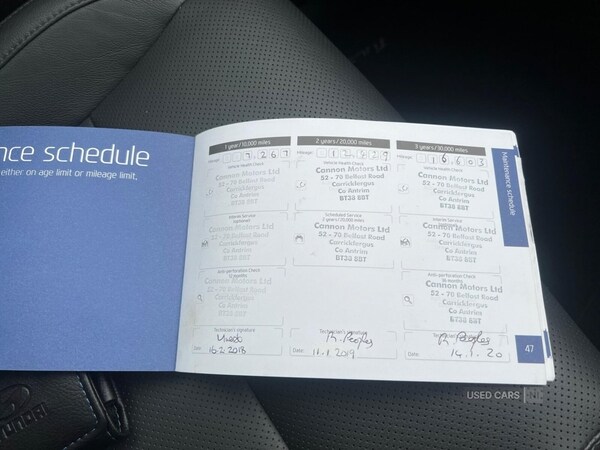 nce schedule
either on age limit or mileage limit,
1 year/10,000 miles
Mileage 7,267
Vehicle Health Check
Cannon Motors Ltd
52 - 70 Belfast Road
Carrickfergus
Co Antrim
BT38 8BT
Interim Service
(optional)
Cannon Motors Ltd
52 - 70 Belfast Road
Carrickfergus
Co Antrim
BT38 8BT
Anti-perforation Check
12 months
Cannon Motors Ltd
52 - 70 Belfast Road
Carrickfergus
Co Antrim
BT38 8BT
Technician's signature
Date: 16.2.2018
2 years/20,000 miles
Mileage
Vehicle Health Check
Cannon Motors Ltd
52 - 70 Belfast Road
Carrickfergus
Co Antrim
BT38 8BT
Scheduled Service
2 years/20,000 miles
Cannon Motors Ltd
52 - 70 Belfast Road
Carrickfergus
Co Antrim
BT38 8BT
Technician's signature
R. Peoples
Date: 11.1.2019
3 years/30,000 miles
Mileage 16,603
Vehicle Health Check
Cannon Motors Ltd
52 - 70 Belfast Road
Carrickfergus
Co Antrim
BT38 8BT
Interim Service
Cannon Motors Ltd
52 - 70 Belfast Road
Carrickfergus
Co Antrim
BT38 8BT
Anti-perforation Check
36 months
Cannon Motors Ltd
52 - 70 Belfast Road
Carrickfergus
Co Antrim
BT38 8BT
Technician's signature
R. Peoples
Date: 14.1.20
Maintenance schedule
47
HYUNDAI
USED CARS NI